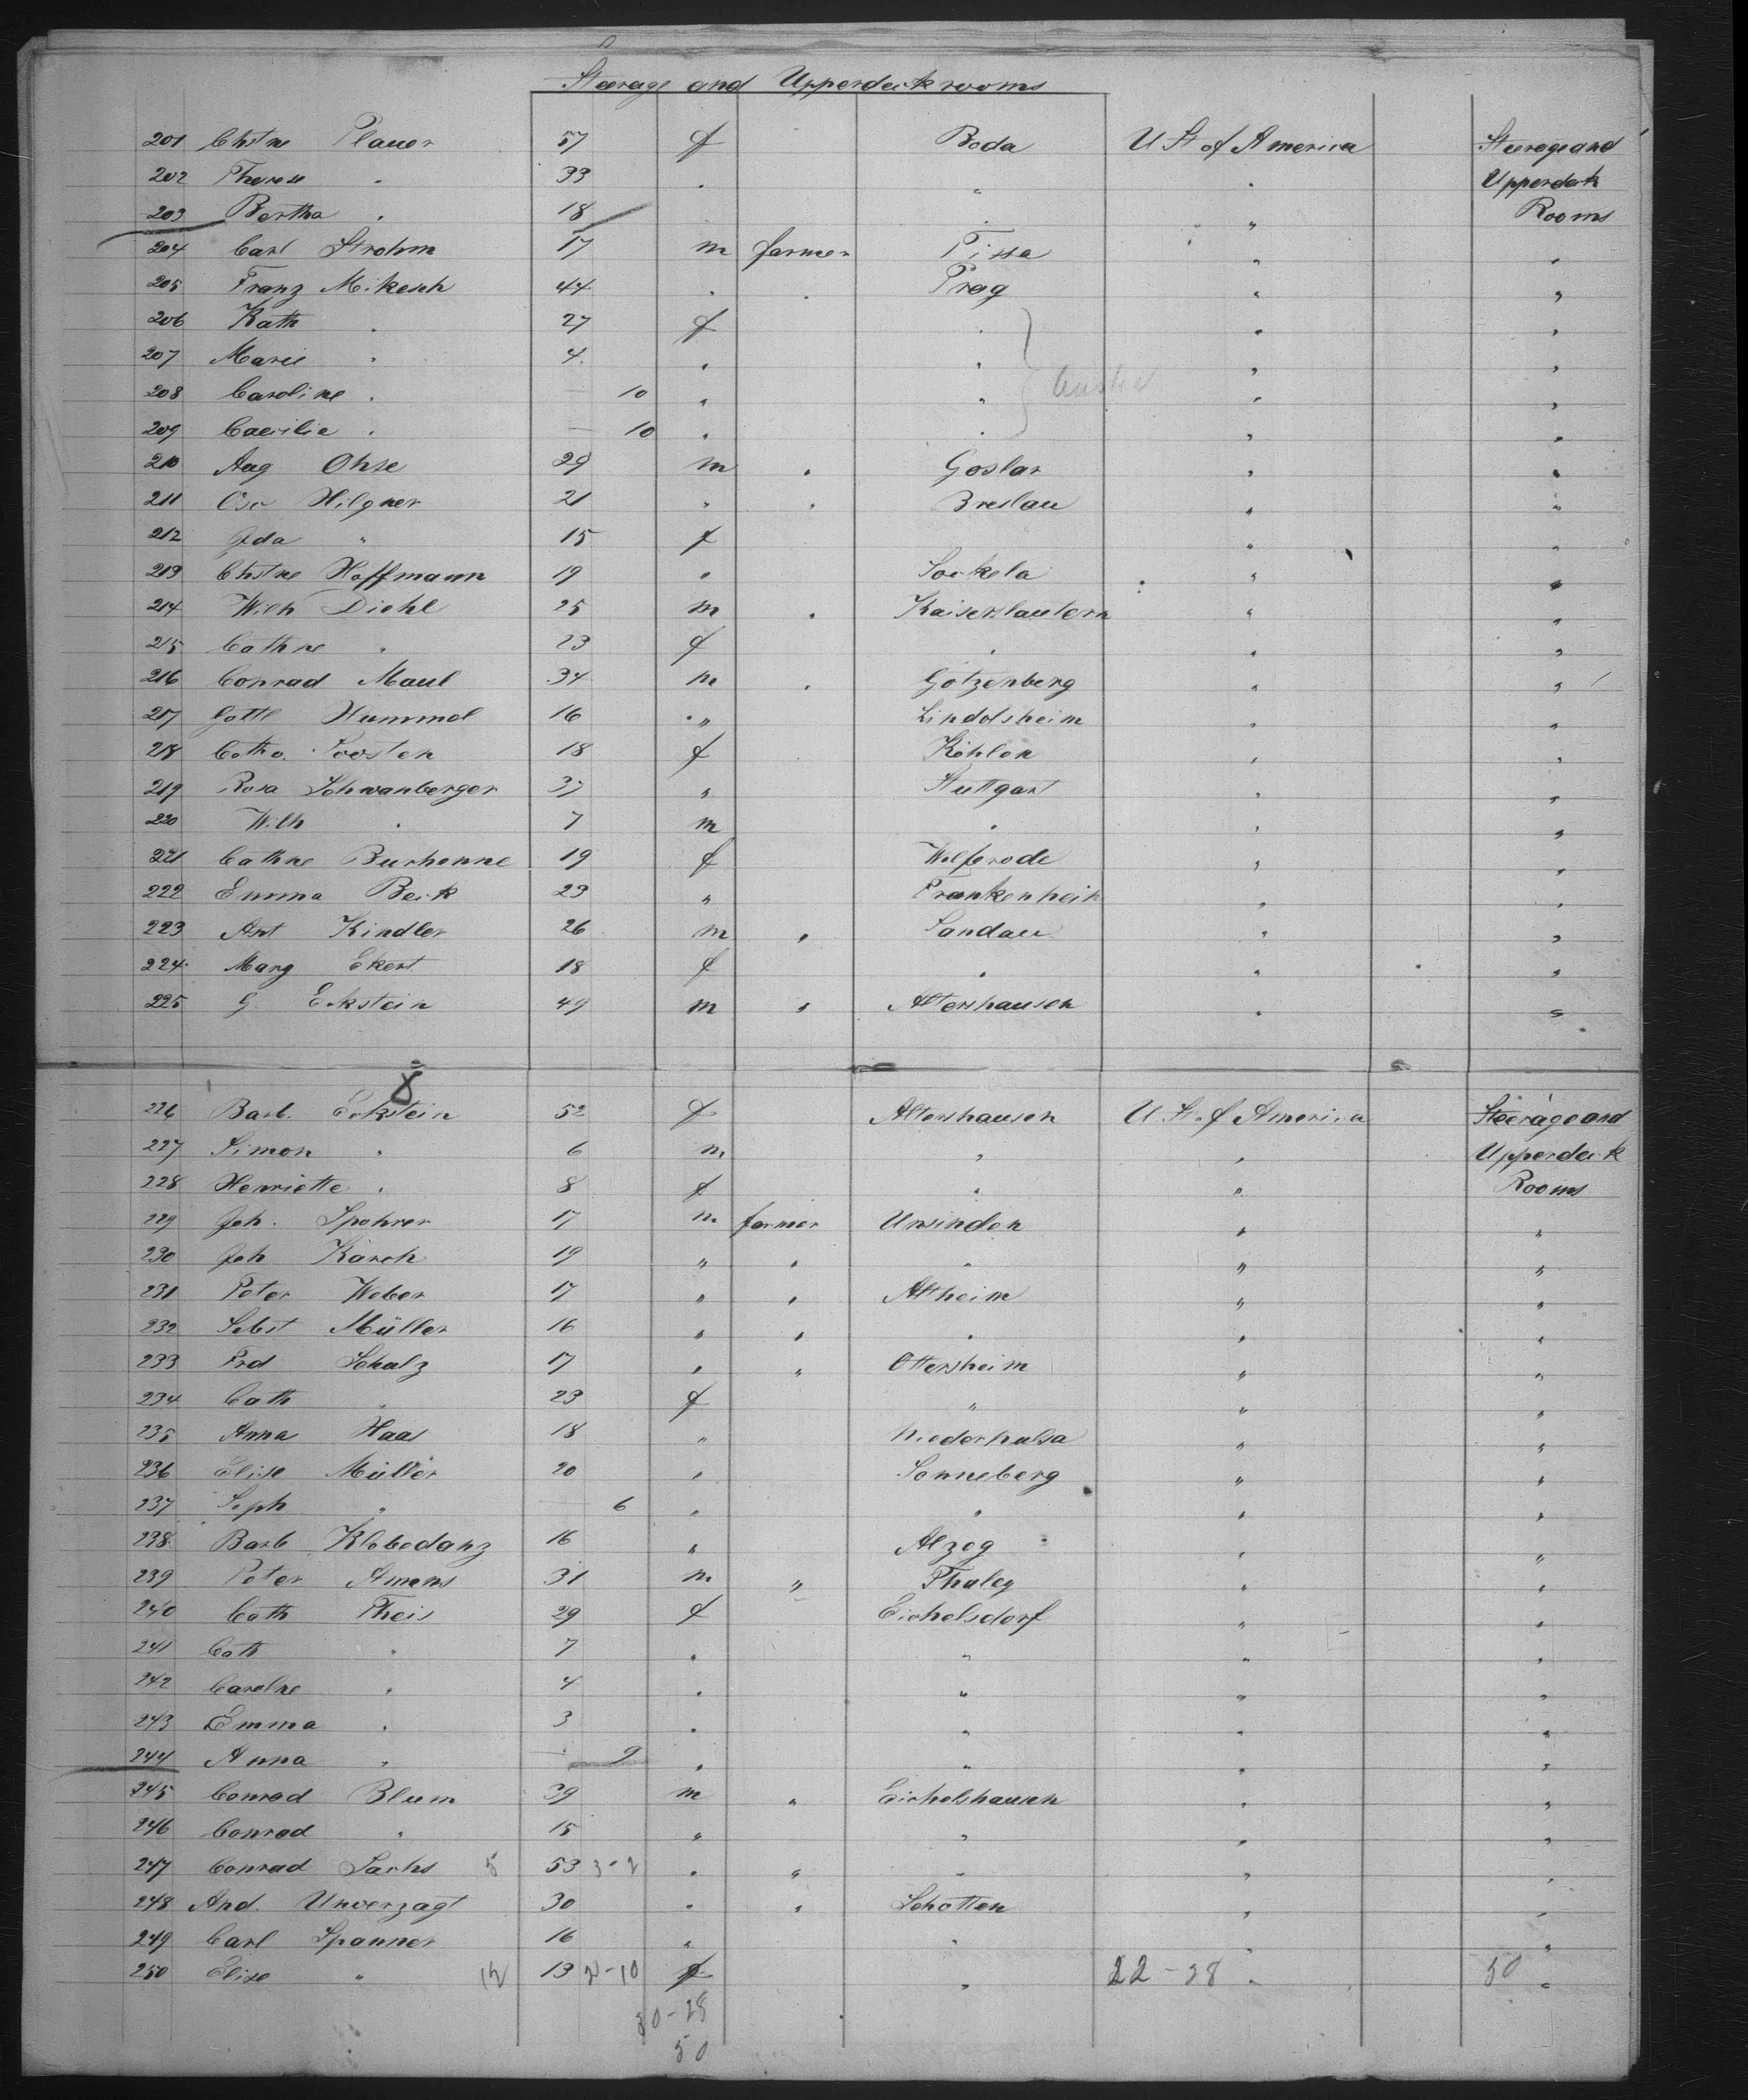 Steerage and Upperdeck rooms
201 Chstne Plauer 57 f Boda U St of America Steerage and
202 Therese " 33 " " " Upperdeck
203 Bertha " 18 " " " Rooms
204 Carl Strohm 17 m farmer Tissa " "
205 Franz Mikesch 44 " " Prag " "
206 Kath " 27 f " " "
207 Marie " 4 " " " "
208 Caroline " — 10 " " " "
209 Caecilie " — 10 " " " "
210 Aug Ohse 29 m " Goslar " "
211 Osc Hilgner 21 " " Breslau " "
212 Ida " 15 f " "
213 Chstne Hoffmann 19 " Sockela " "
214 Wilh Diehl 25 m " Kaiserslautern " "
215 Cathne " 23 f " " "
216 Conrad Maul 34 m " Götzenberg " "
217 Gottl Hummel 16 " Lindolsheim " "
218 Cath. Soosten 18 f Köhlen " "
219 Rosa Schwanberger 37 " Stuttgart " "
220 Wilh " 7 m " " "
221 Cathne Burhenne 19 f Wolferode " "
222 Emma Beck 23 " Frankenhein " "
223 Ant Kindler 26 m " Sandau " "
224 Marg Ekert 18 f " " "
225 G. Eckstein 49 m " Altershausen " "
8
226 Barb. Eckstein 52 f Altershausen U. St. of America Steerage and
227 Simon " 6 m " " Upperdeck
228 Henriette " 8 f " " Rooms
229 Joh. Spohrer 17 m farmer Ursinden " "
230 Joh Karch 19 " " " " "
231 Peter Weber 17 " " Altheim " "
232 Sebst Müller 16 " " " " "
233 Frd Schulz 17 " " Ottersheim " "
234 Cath " 23 f " " "
235 Anna Haas 18 " Niederhulsa " "
236 Elise Müller 20 " Sonneberg " "
237 Soph " — 6 " " " "
238 Barb Klebedanz 16 " Alzeg " "
239 Peter Amens 31 m " Thaleg " "
240 Cath Theis 29 f Eichelsdorf " "
241 Cath " 7 " " " "
242 Carolne " 4 " " " "
243 Emma " 3 " " " "
244 Anna " — 9 " " " "
245 Conrad Blum 39 m " Eichelshausen " "
246 Conrad " 15 " " " "
247 Conrad Sachs 5 53 3-2 " " " " "
248 And. Unverzagt 30 " " Schotten " "
249 Carl Spanner 16 " " " "
250 Elise " 12 13 2-10 f " 22-28 " 50 "
30-28
50